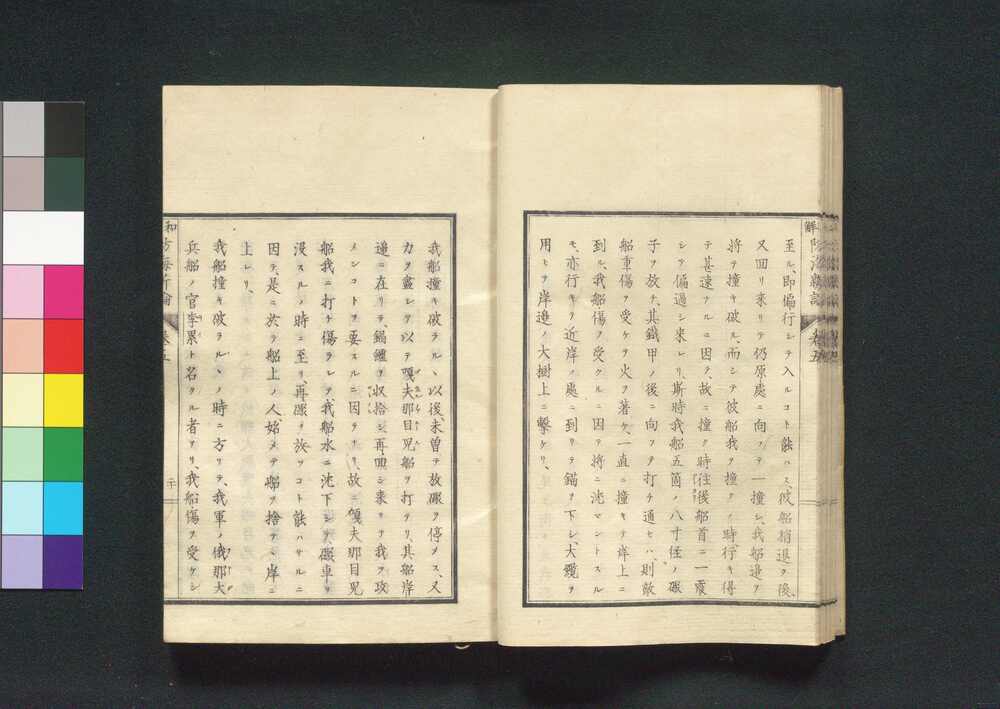 至ル、即偏行シテ入ルコト能ハス、彼船稍退ヲ後、
又回リ来リテ仍原處ニ向フテ一撞シ、我船邉ヲ
將テ撞キ破ル、而シテ彼船我ヲ撞クノ時行キ得
テ甚速ナルニ因テ、故ニ撞ク時往後船首ニ一震
シテ偏過シ来レリ、斯時我船五箇ノ八寸径ノ礟
子ヲ放チ、其鐵甲ノ後ニ向フテ打チ通セハ、則敵
船重傷ヲ受ケテ火ヲ著ケ、一直ニ撞キテ岸上ニ
到ル、我船傷ヲ受クルニ因テ將ニ沈マントスル
モ、亦行キテ近岸ノ處ニ到リテ錨ヲ下シ、大纜ヲ
用ヒテ岸邉ノ大樹上ニ繫ケリ、
我船撞キ破ラルヽ以後、未曽テ放礟ヲ停メス、又
力ヲ盡シテ以テ嘎夫那目児船ヲ打テリ、其船岸
邉ニ在リテ、錨鏈ヲ収拾シ再回シ来リテ我ヲ攻
メンコトヲ要スルニ因テナリ、故ニ嘎夫那目児
船我ニ打チ傷ラレテ我船水ニ沈下シテ礟車ヲ
浸スルノ時ニ至リ、再礟ヲ放ツコト能ハサルニ
因テ、是ニ於テ船上ノ人、始メテ船ヲ捨テヽ岸ニ
上レリ、
我船撞キ破ラルヽノ時ニ方リテ、我軍ノ俄那大
兵船ノ官李累ト名クル者アリ、我船傷ヲ受ケシ
巻五
二十